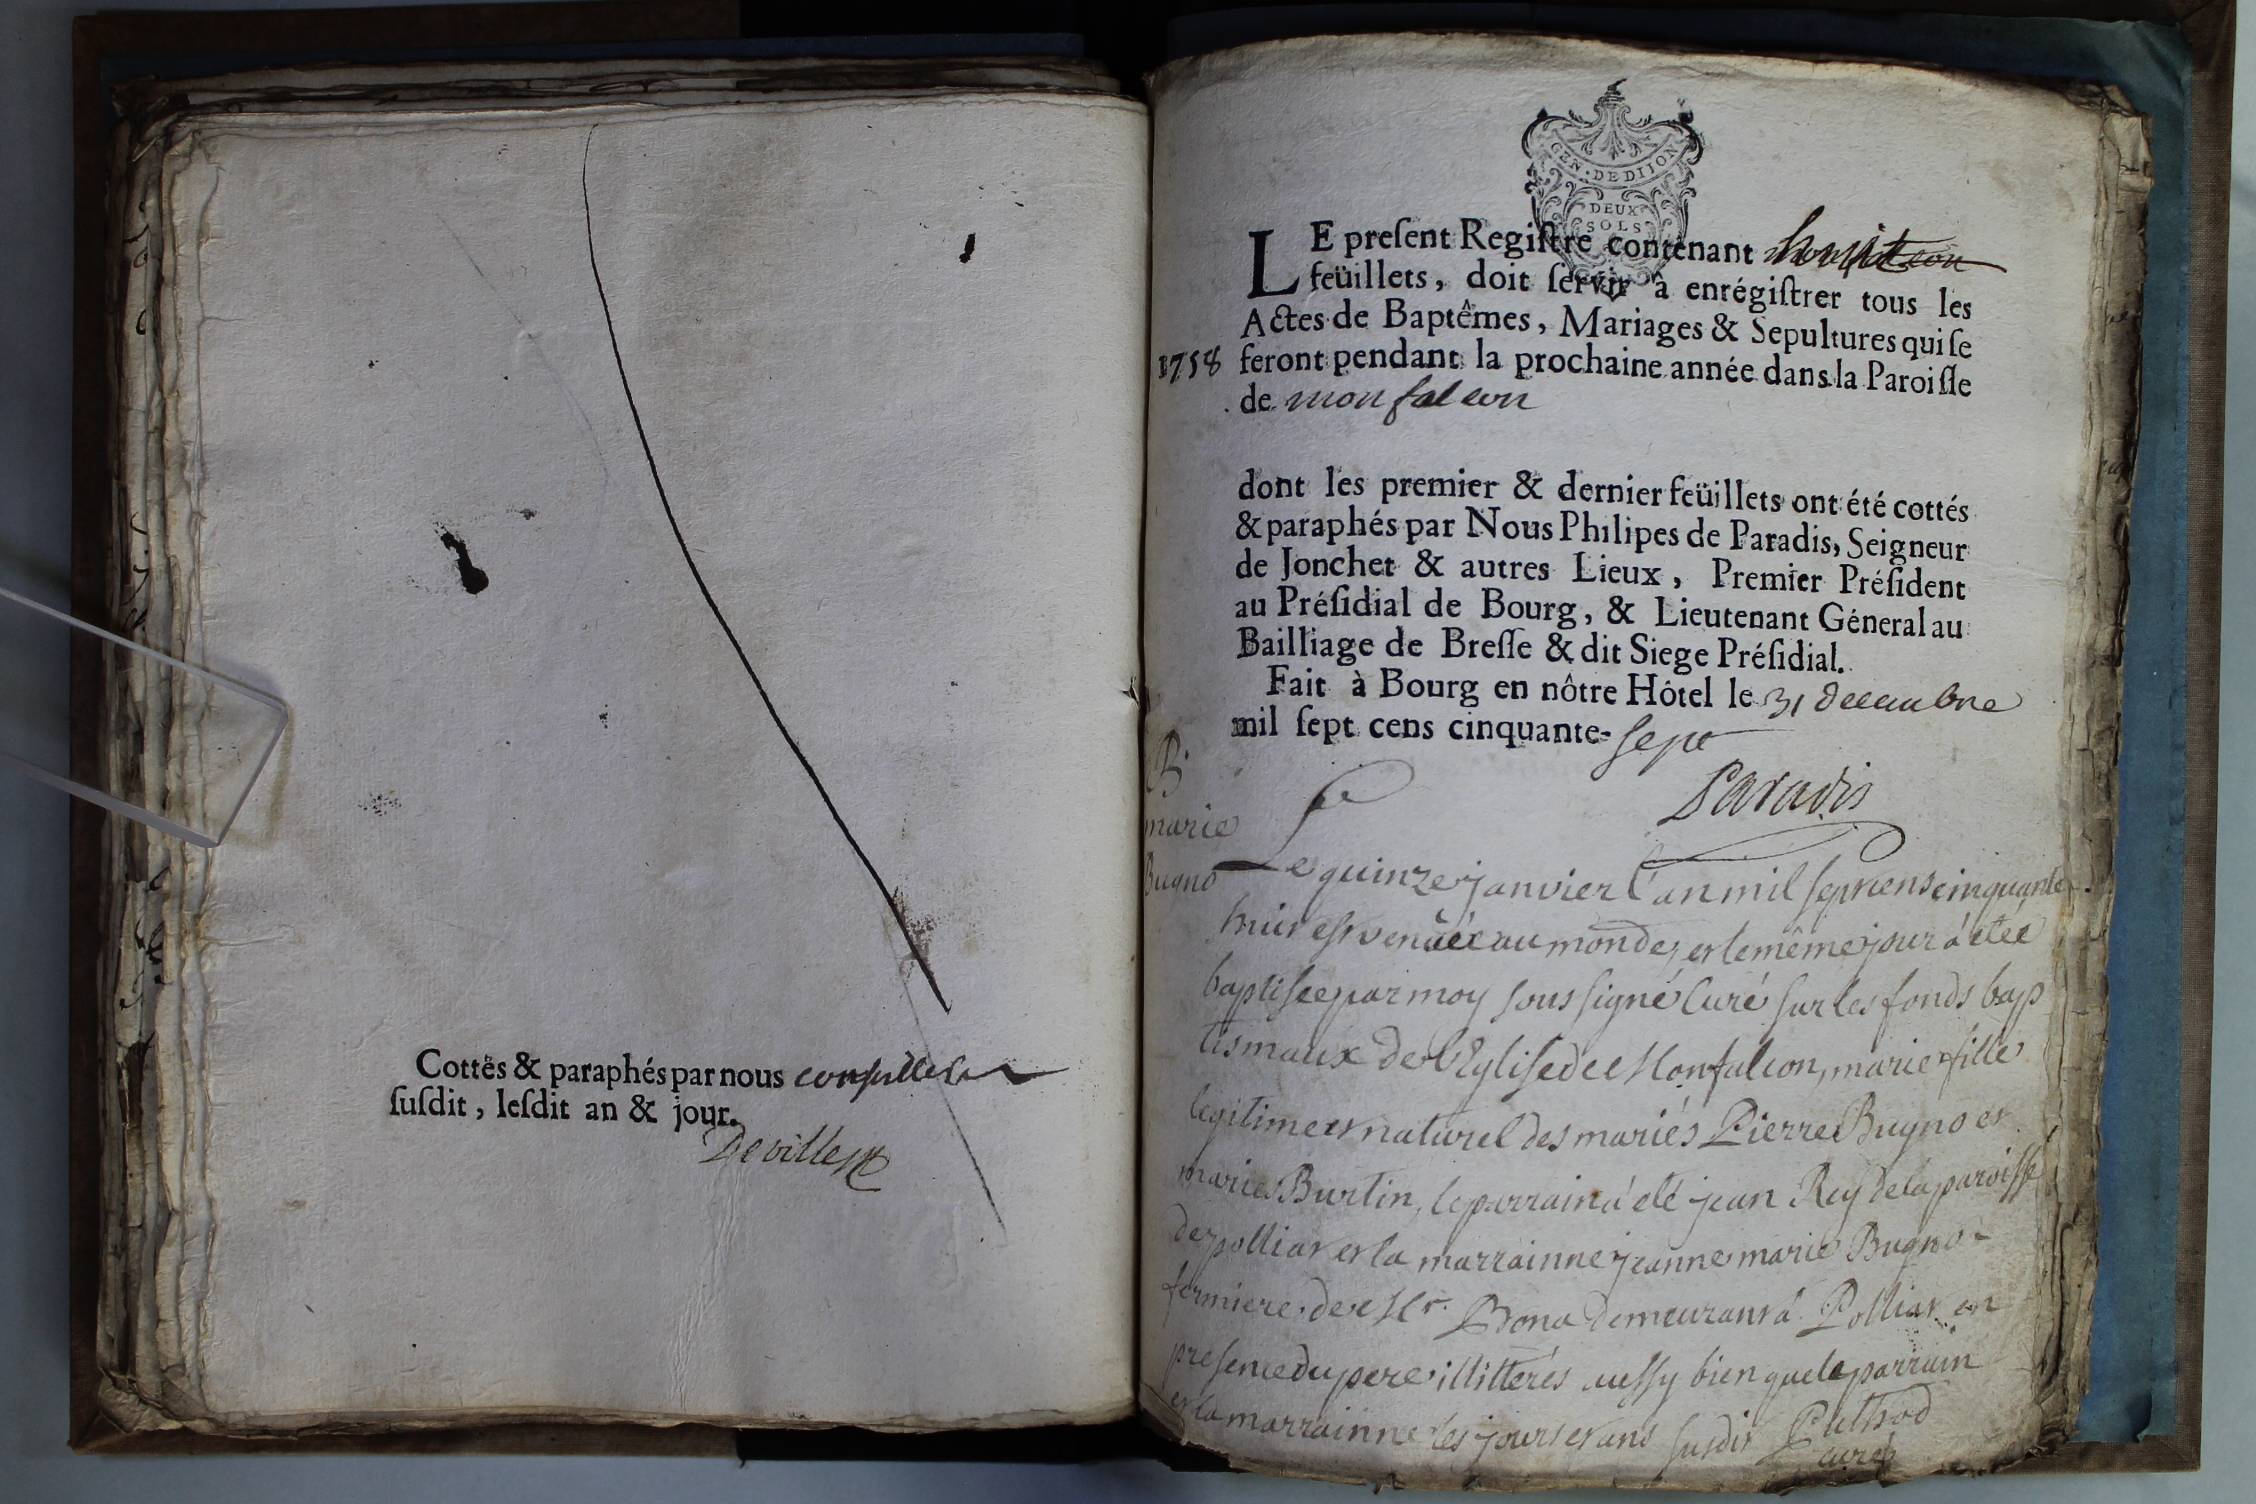 Cottés & paraphés par nous conseiller
ſuſdit, leſdit an & jour.
Deville
GEN · DE DIJON
DEUX
SOLS
LE preſent Regiſtre contenant
feüillets, doit ſervir à enrégiſtrer tous les
Actes de Baptêmes, Mariages & Sepultures qui ſe
1758 feront pendant la prochaine année dans la Paroiſſe
de monfalcon
dont les premier & dernier feüillets ont été cottés
& paraphés par Nous Philipes de Paradis, Seigneur
de Jonchet & autres Lieux, Premier Préſident
au Préſidial de Bourg, & Lieutenant Géneral au
Bailliage de Breſſe & dit Siege Préſidial.
Fait à Bourg en nôtre Hôtel le 31 decembre
mil ſept cens cinquante-ſept
Paradis
B.
marie
Bugno
Le quinze janvier l'an mil sept cens cinquante
huit est venüe au monde, et le même jour a étée
baptisée par moy sous signé Curé sur les fonds bap
tismaux de l'Eglise de Monfalcon, marie fille
legitime et naturel des mariés Pierre Bugno et
marie Burtin, le parrain a été jean Rey de la paroisse
de polliat et la marrainne jeanne marie Bugno
fermiere de Mr. Bona demeurant à Polliat en
presence du pere illitterés aussy bien que le parrain
et la marrainne les jour et ans susdit Puthod
curé